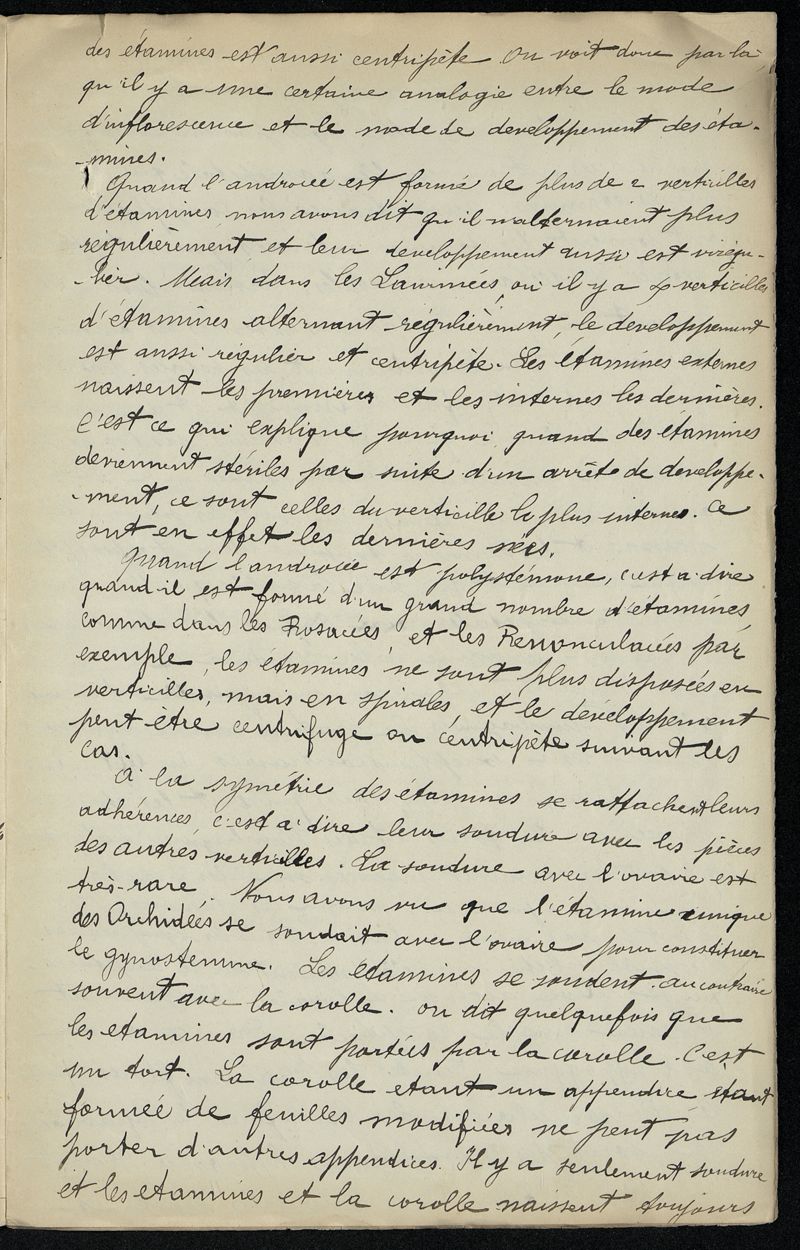 des étamines est aussi centripète. On voit donc par là,
qu'il y a une certaine analogie entre le mode
d'inflorescence et le mode de developpement des éta-
-mines.
Quand l'androcée est formé de plus de 2 verticilles
d'étamines, nous avons dit qu'il n'alternaient plus
régulièrement, et leur developpement aussi est irrégu-
-lier. Mais dans les Laurinées, où il y a verticilles
d'étamines alternant régulièrement, le developpement
est aussi régulier et centripète. Les étamines externes
naissent les premières et les internes les dernières.
C'est ce qui explique pourquoi quand des étamines
deviennent stériles par suite d'un arrête de developpe-
-ment, ce sont celles du verticille le plus internes. Ce
sont en effet les dernières nées.
Quand l'androcée est polystémone, c'est a dire
quand il est formé d'un grand nombre d'étamines,
comme dans les Rosacées et les Renonculacées par
exemple, les étamines ne sont plus disposées en
verticilles, mais en spirales, et le développement
peut être centrifuge ou centripète suivant les
cas.
A la symétrie des étamines se rattachent leurs
adhérences, c'est a dire leur soudure avec les pièces
des autres verticilles. La soudure avec l'ovaire est
très-rare. Nous avons vu que l'étamine unique
des Orchidées se soudait avec l'ovaire pour constituer
le gynostemme. Les étamines se soudent au contraire
souvent avec la corolle. On dit quelquefois que
les etamines sont portées par la corolle. C'est
un tort. La corolle etant un appendice etant
formée de feuilles modifiées ne peut pas
porter d'autres appendices. Il y a seulement soudure
et les etamines et la corolle naissent toujours